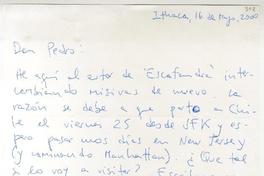 Ithaca, 16 de Mayo, 2000
Don Pedro:
He aquí al autor de "Escafandra" inter-
cambiando misivas de nuevo. La
razón se debe a que parto a Chi-
le el viernes 25 desde JFK y es-
pero pasar unos días en New Jersey
(y caminando Manhattan). ¿Qué tal
si lo voy a visitar?